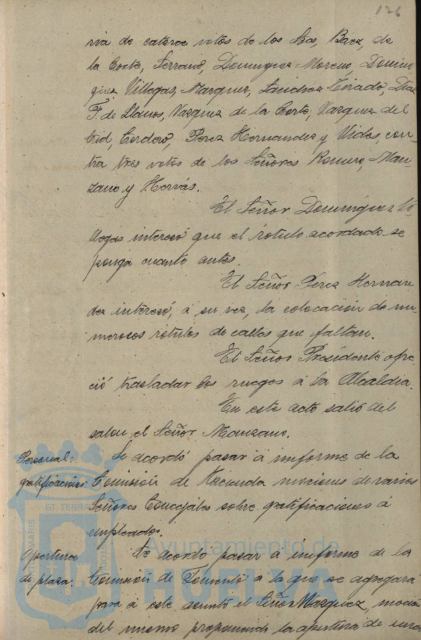 126
ria de catorce votos de los Sres, Baez, de
la Corte, Serrano, Dominguez Moreno, Domin-
guez Villegas, Marquez, Sanchez Tirado, Diaz
F. de Llanos, Vazquez de la Corte, Vazquez del
Cid, Cordero, Perez Hernandez y Vides, con-
tra tres votos de los Señores Romero, Man-
zano y Hervás.
El Señor Dominguez Vi-
llegas interesó que el rótulo acordado se
ponga cuanto antes.
El Señor Perez Hernan-
dez interesó, á su vez, la colocación de nu-
merosos rotulos de calles que faltan.
El Señor Presidente ofre-
ció trasladar los ruegos á la Alcaldia.
En este acto salió del
salon, el Señor Manzano.
Personal:
gratificaciones
Se acordó pasar á informe de la
Comisión de Hacienda mociones de varios
Señores Concejales sobre gratificaciones á
empleados.
Apertura
de plaza.
Se acordó pasar á informe de la
Comisión de Fomento á la que se agregara
para á este asunto el Señor Marquez, moción
del mismo proponiendo la apertura de una
Ayuntamiento de
HUELVA